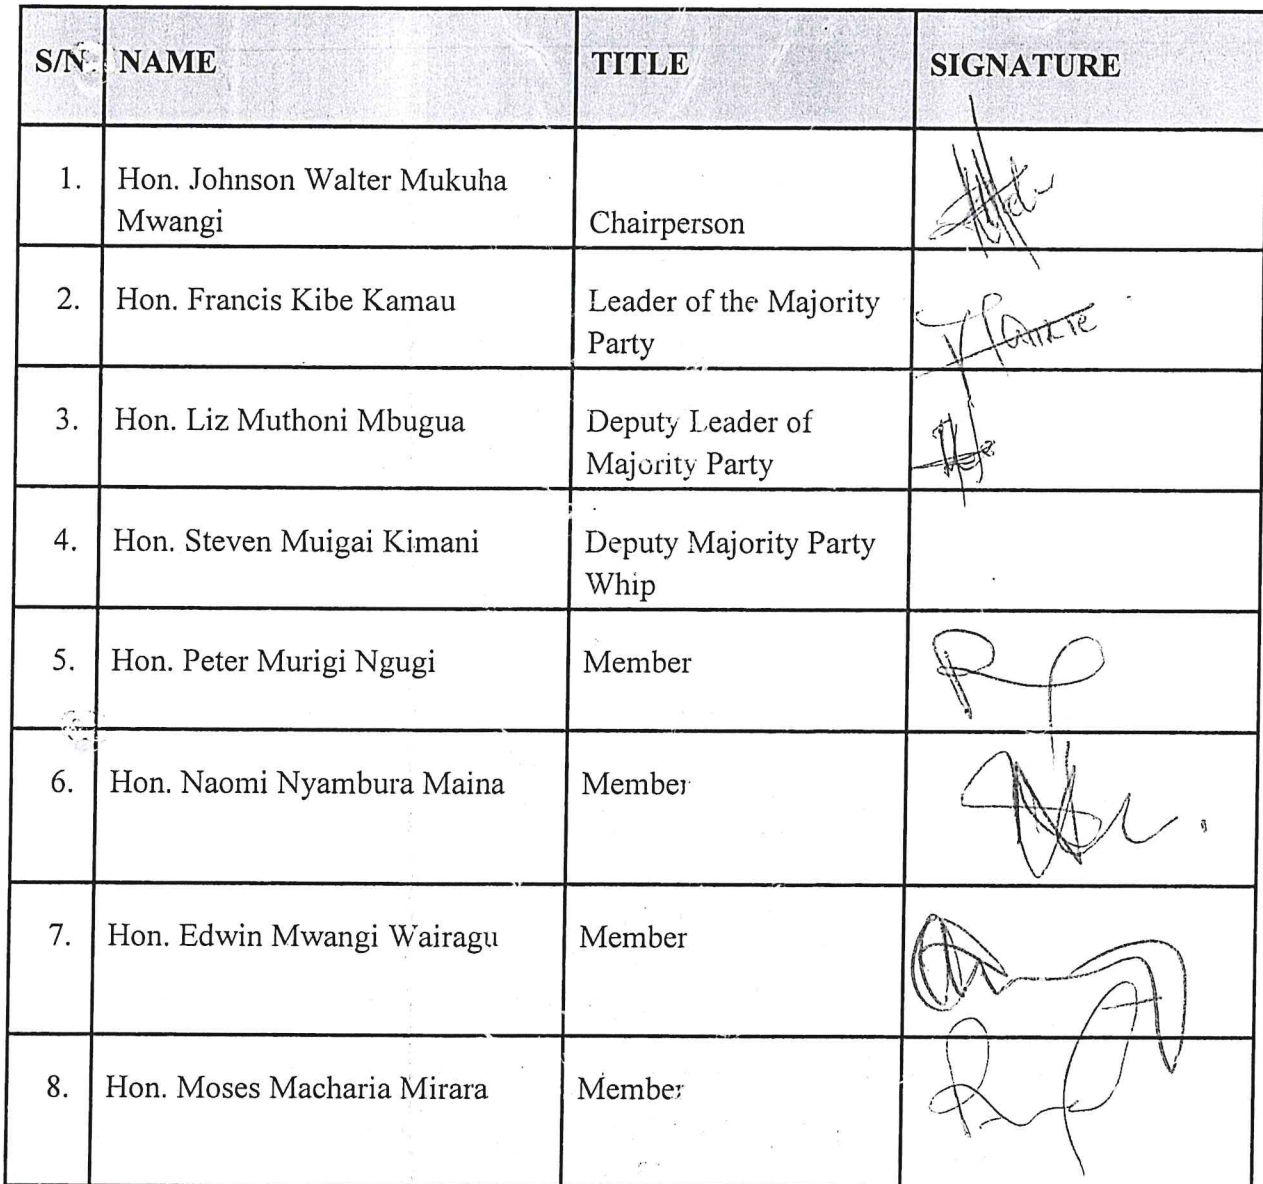 S/N. NAME TITLE SIGNATURE
1. Hon. Johnson Walter Mukuha
Mwangi Chairperson
2. Hon. Francis Kibe Kamau Leader of the Majority
Party
3. Hon. Liz Muthoni Mbugua Deputy Leader of
Majority Party
4. Hon. Steven Muigai Kimani Deputy Majority Party
Whip
5. Hon. Peter Murigi Ngugi Member
6. Hon. Naomi Nyambura Maina Member
7. Hon. Edwin Mwangi Wairagu Member
8. Hon. Moses Macharia Mirara Member